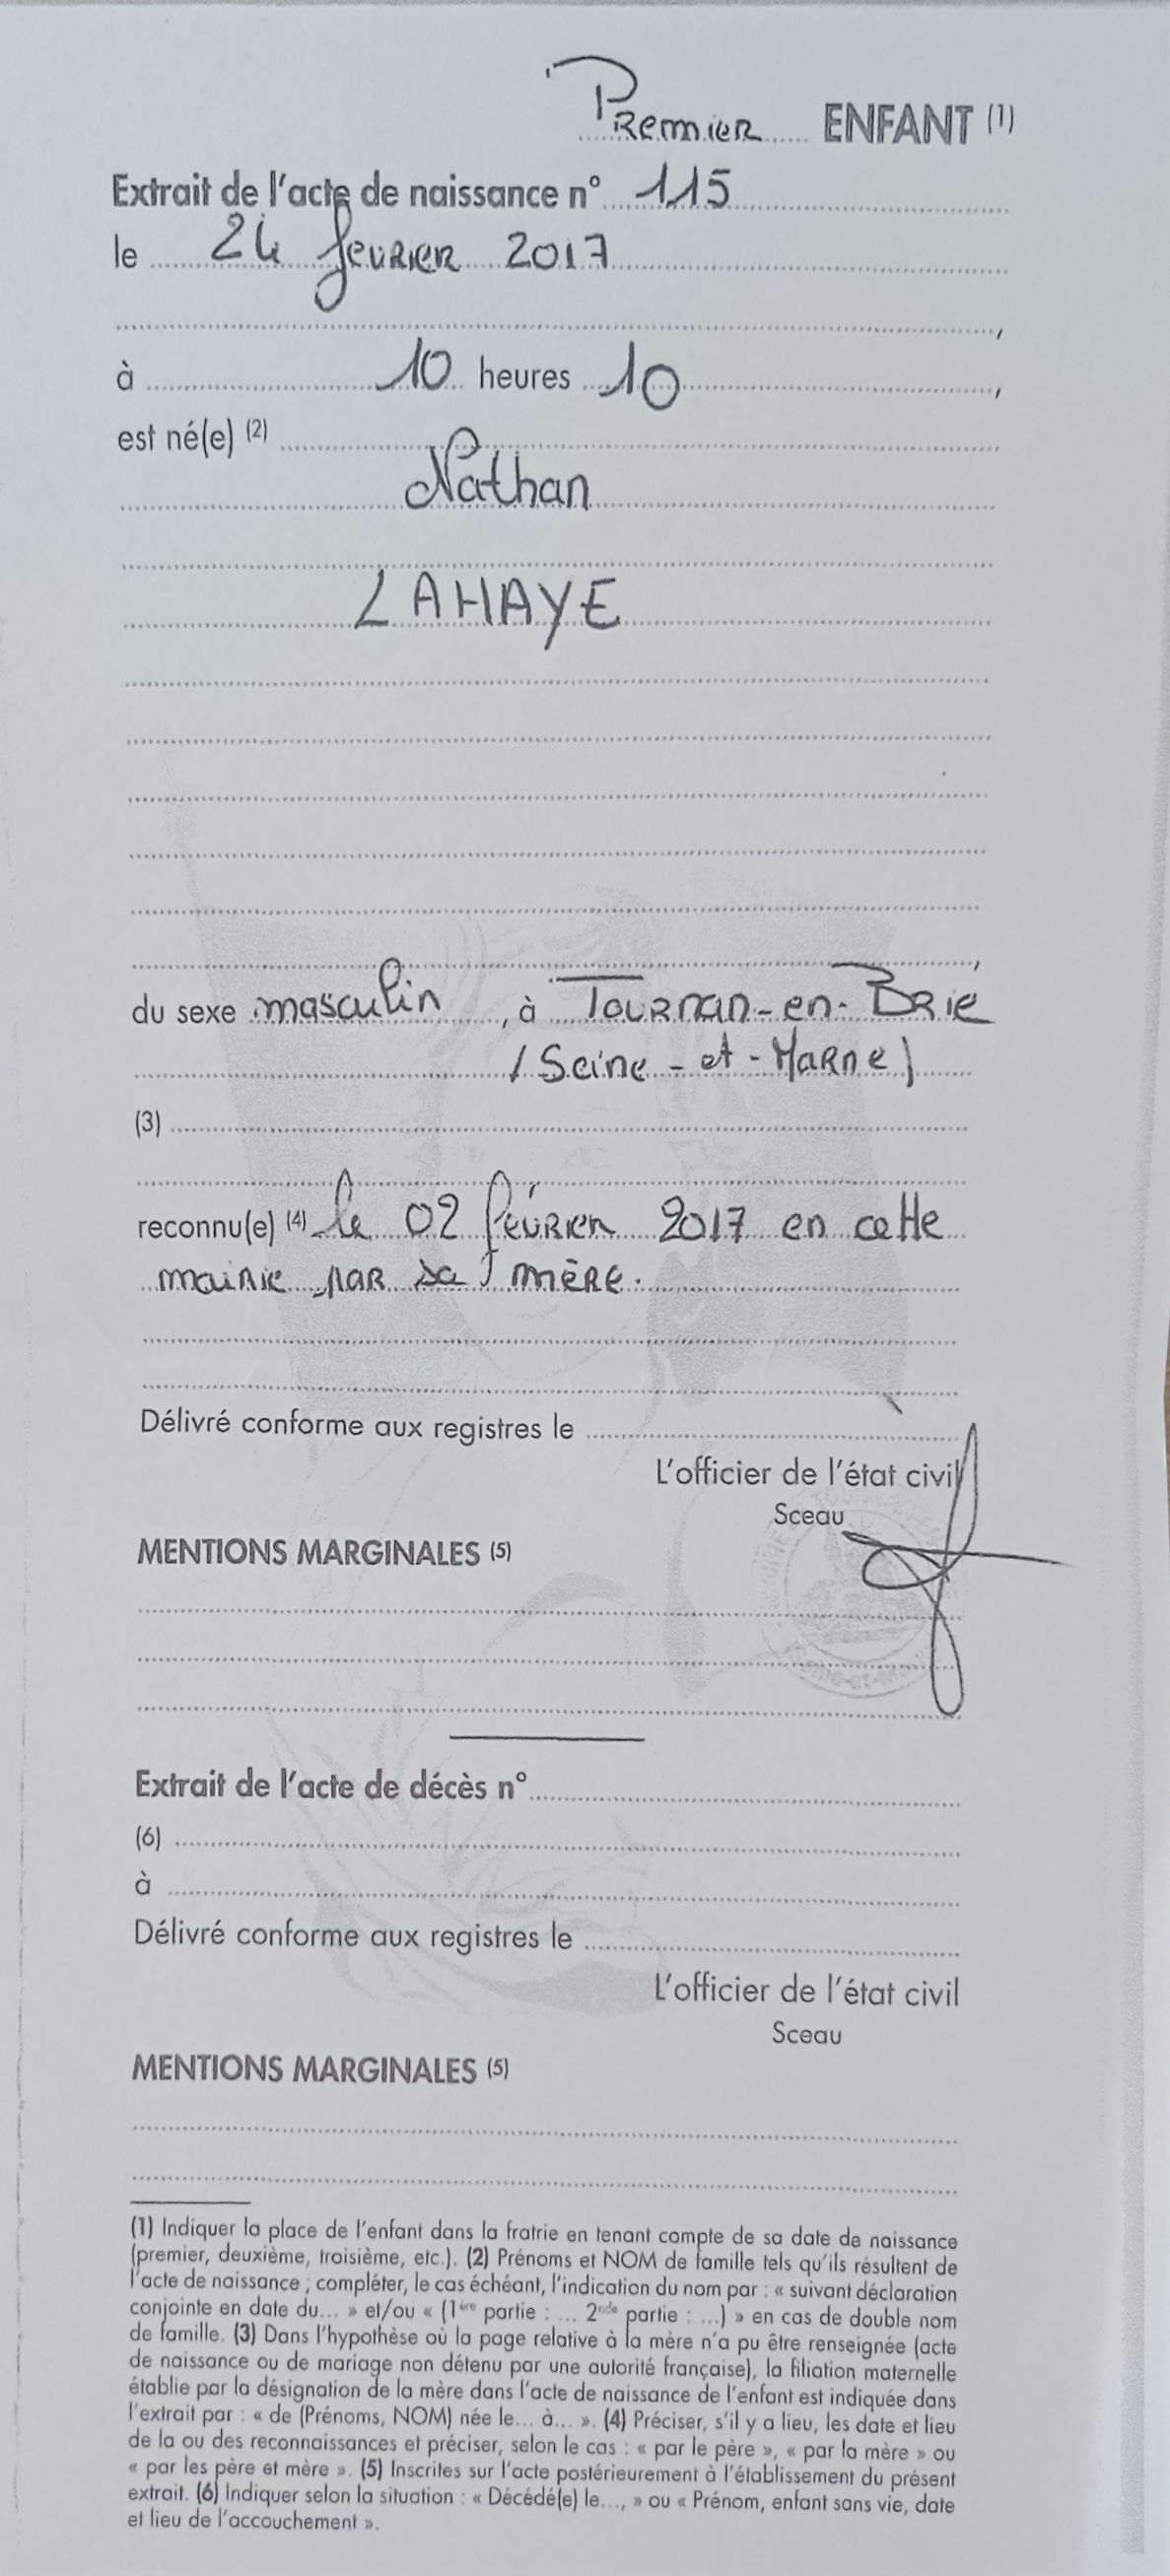 Premier ENFANT (1)
Extrait de l'acte de naissance n° 115
le 24 fevrier 2017
à 10 heures 10,
est né(e) (2)
Nathan
LAHAYE
du sexe masculin, à Tournan-en-Brie
(Seine-et-Marne)
(3)
reconnu(e) (4) le 02 février 2017 en cette
mairie par sa mère.
Délivré conforme aux registres le
L'officier de l'état civil
Sceau
MENTIONS MARGINALES (5)
Extrait de l'acte de décès n°
(6)
à
Délivré conforme aux registres le
L'officier de l'état civil
Sceau
MENTIONS MARGINALES (5)
(1) Indiquer la place de l'enfant dans la fratrie en tenant compte de sa date de naissance
(premier, deuxième, troisième, etc.). (2) Prénoms et NOM de famille tels qu'ils résultent de
l'acte de naissance ; compléter, le cas échéant, l'indication du nom par : « suivant déclaration
conjointe en date du... » et/ou « (1ère partie : ... 2nde partie : ...) » en cas de double nom
de famille. (3) Dans l'hypothèse où la page relative à la mère n'a pu être renseignée (acte
de naissance ou de mariage non détenu par une autorité française), la filiation maternelle
établie par la désignation de la mère dans l'acte de naissance de l'enfant est indiquée dans
l'extrait par : « de (Prénoms, NOM) née le... à... ». (4) Préciser, s'il y a lieu, les date et lieu
de la ou des reconnaissances et préciser, selon le cas : « par le père », « par la mère » ou
« par les père et mère ». (5) Inscrites sur l'acte postérieurement à l'établissement du présent
extrait. (6) Indiquer selon la situation : « Décédé(e) le..., » ou « Prénom, enfant sans vie, date
et lieu de l'accouchement ».